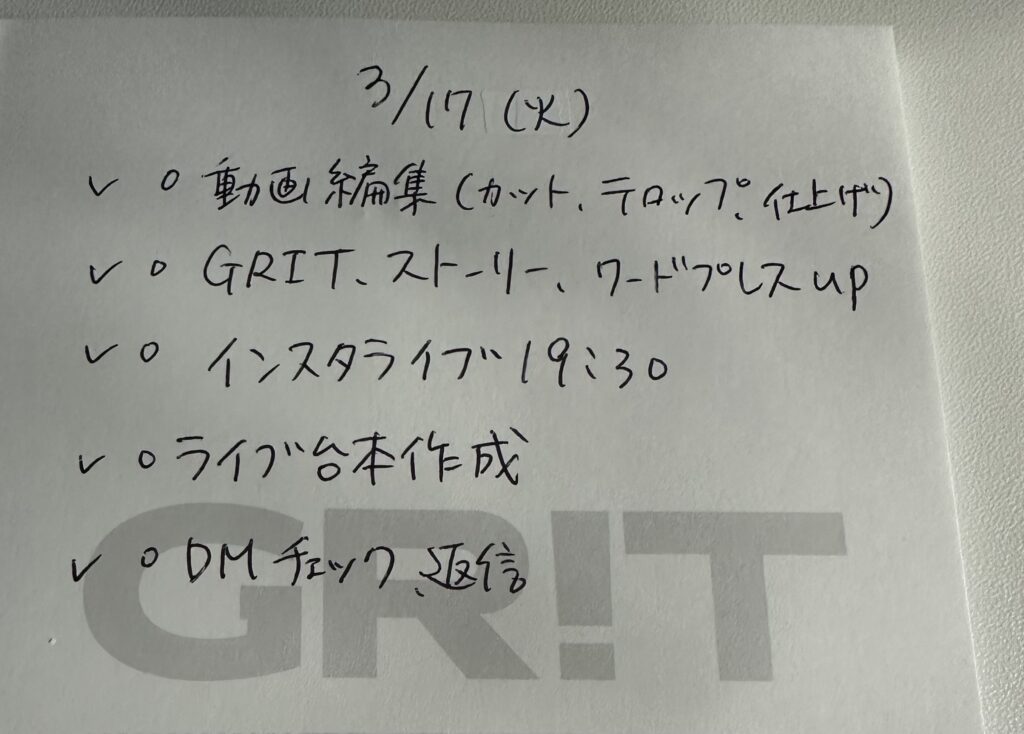 3/17 (火)
✓ ○ 動画編集 (カット、テロップ、仕上げ)
✓ ○ GRIT、ストーリー、ワードプレスup
✓ ○ インスタライブ 19:30
✓ ○ ライブ台本作成
✓ ○ DMチェック、返信
GR!T